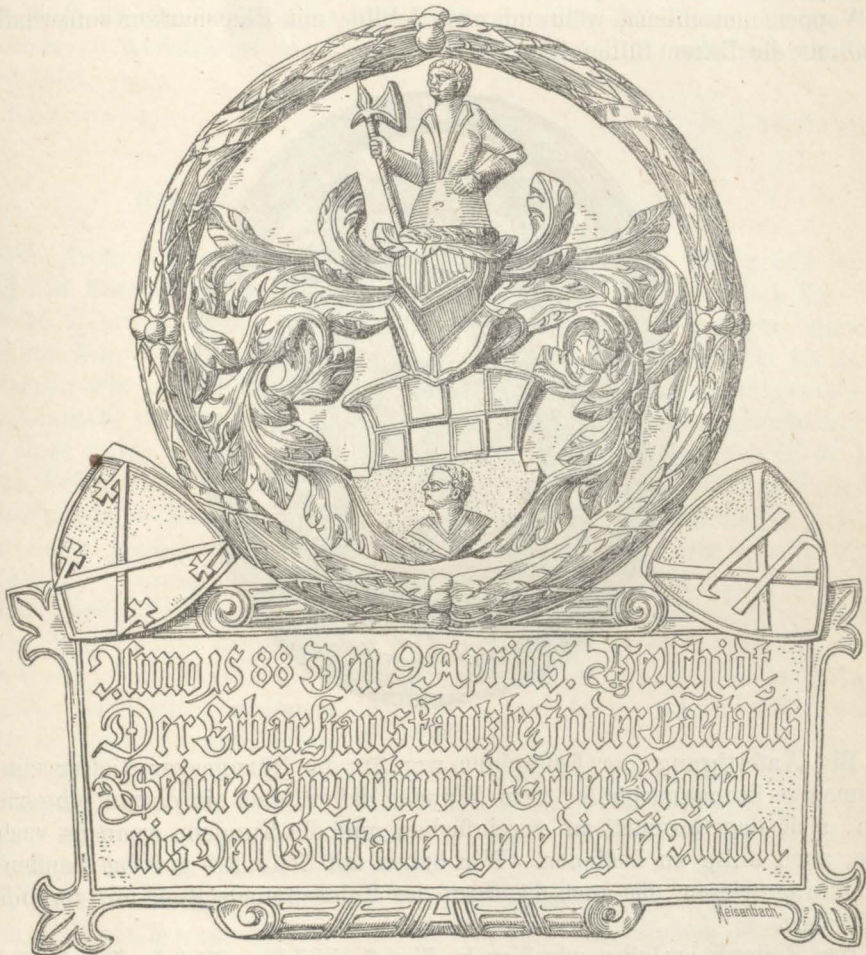 Anno 1588 Den 9 Aprills. Verschidt
Der Erbar Hans Kantzler In der Cartaus
Seiner Ehwirtin vnd Erben Begreb
nis Den Gott allen genedig sei Amen
Meisenbach.